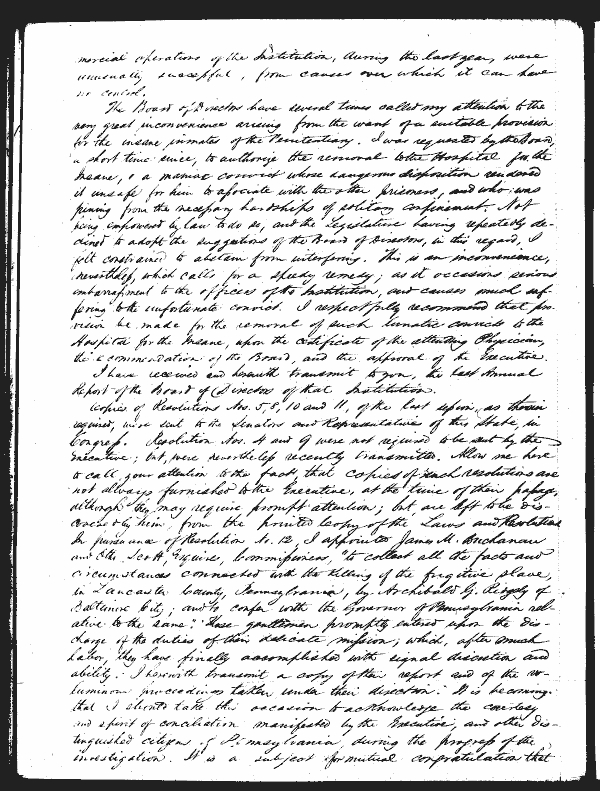 mercial operations of the Institution, during the last year, were
unusually successful, from causes over which it can have
no control.
The Board of Directors have several times called my attention to the
very great inconvenience arising from the want of a suitable provision
for the insane inmates of the Penitentiary. I was requested by the Board,
a short time since, to authorize the removal to the Hospital for the
Insane, of a maniac convict whose dangerous disposition rendered
it unsafe for him to associate with the other prisoners, and who was
pining from the necessary hardships of solitary confinement. Not
being empowered by law to do so, and the Legislature having repeatedly de-
clined to adopt the suggestions of the Board of Directors, in this regard, I
felt constrained to abstain from interfering. This is an inconvenience,
nevertheless, which calls for a speedy remedy; as it occasions serious
embarrassment to the officers of the Institution, and causes much suf-
fering to the unfortunate convict. I respectfully recommend that pro-
vision be made for the removal of such lunatic convicts to the
Hospital for the Insane, upon the certificate of the attending Physician,
the recommendation of the Board, and the approval of the Executive.
I have received and herewith transmit to you, the last Annual
Report of the Board of Directors of that Institution.
Copies of Resolutions Nos. 5, 8, 10 and 11, of the last session, as therein
required, were sent to the Senators and Representatives of this State, in
Congress. Resolution Nos. 4 and 9 were not required to be sent by the
Executive; but, were nevertheless recently transmitted. Allow me here
to call your attention to the fact, that copies of such resolutions are
not always furnished to the Executive, at the time of their passage,
although they may require prompt attention; but, are left to be dis-
covered by him, from the printed copy of the Laws and Resolutions
In pursuance of Resolution No. 12, I appointed James M. Buchanan
and Otho Scott, Esquires, Commissioners, "to collect all the facts and
circumstances connected with the killing of the fugitive slave,
in Lancaster County, Pennsylvania, by Archibald G. Ridgely of
Baltimore City; and to confer with the Governor of Pennsylvania rel-
ative to the same." These gentlemen promptly entered upon the dis-
charge of the duties of their delicate mission; which, after much
labor, they have finally accomplished with signal discretion and
ability. I herewith transmit a copy of their report and of the vo-
luminous proceedings taken under their direction. It is becoming
that I should take this occasion to acknowledge the courtesy
and spirit of conciliation manifested by the Executive, and other dis-
tinguished citizens of Pennsylvania, during the progress of the
investigation. It is a subject for mutual congratulation that